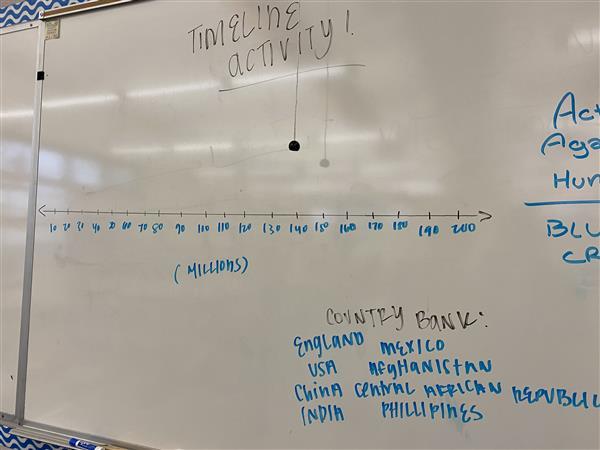 TIMELINE
ACTIVITY!
10 20 30 40 50 60 70 80 90 100 110 120 130 140 150 160 170 180 190 200
(MILLIONS)
COUNTRY BANK:
ENGLAND MEXICO
USA AFGHANISTAN
CHINA CENTRAL AFRICAN REPUBLIC
INDIA PHILLIPINES
Act
Aga
Hun
BLU
CR